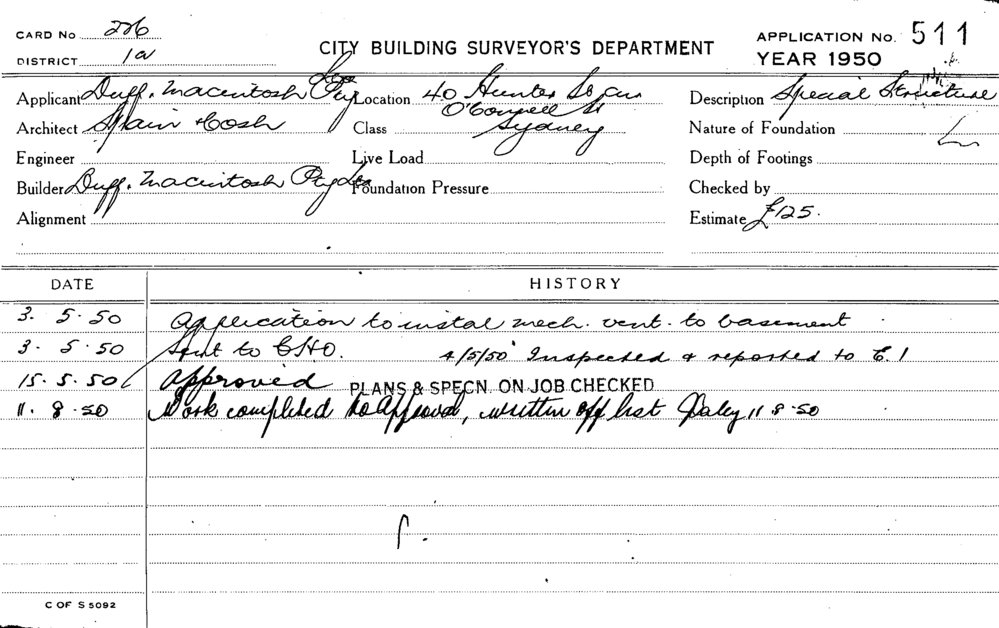 CARD No 226
CITY BUILDING SURVEYOR'S DEPARTMENT
APPLICATION No. 511
DISTRICT 1a
YEAR 1950
Applicant Duff. Macintosh Pty Location 40 Hunter St
O'Connell St
Description Special Structure
Architect Spain & Cosh Class Sydney
Nature of Foundation
Engineer Live Load
Depth of Footings
Builder Duff. Macintosh Pty Foundation Pressure
Checked by
Alignment
Estimate £125.
DATE HISTORY
3. 5. 50 Application to instal mech. vent. to basement
3. 5. 50 Sent to CHO. 4/5/50 Inspected & reported to
15. 5. 50 Approved PLANS & SPECN. ON JOB CHECKED
11. 8. 50 Work completed to approval, written off list Daley 11 8 50
C OF S 5092